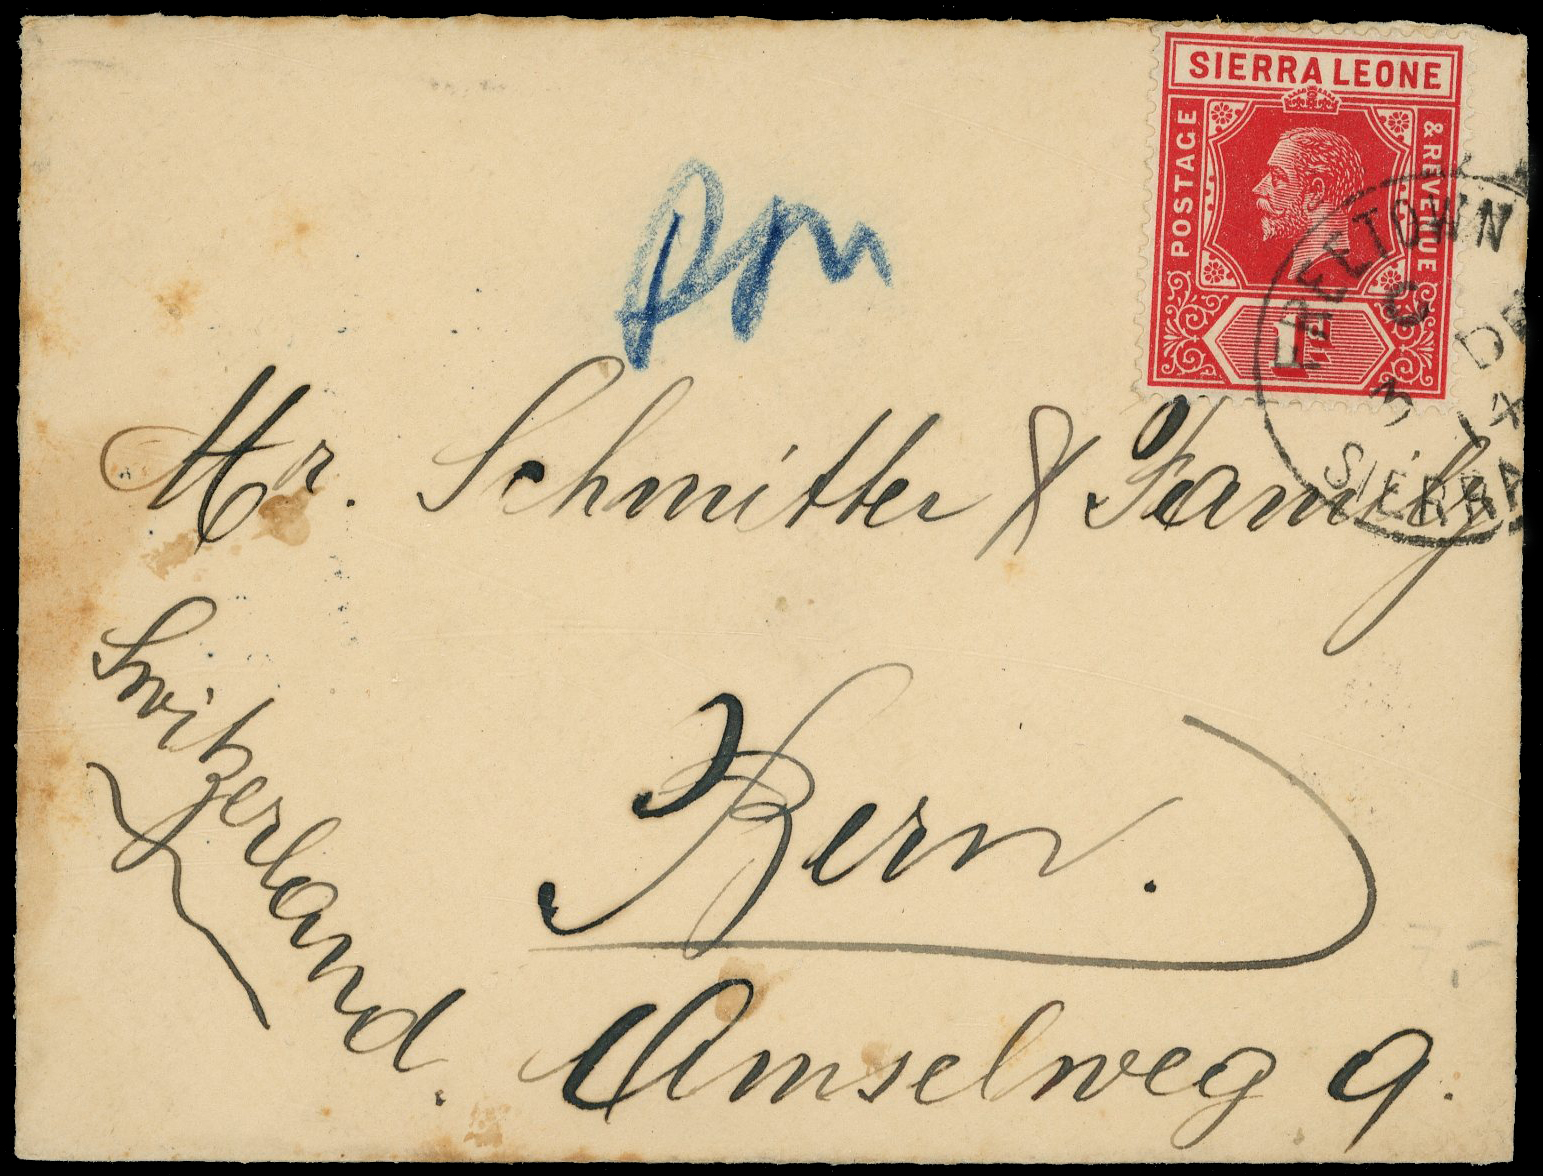 SIERRA LEONE
POSTAGE
& REVENUE
1D
FREETOWN
C
3 DE
14
SIERRA
Mr. Schmitter & Family
Bern.
Amselweg 9.
Switzerland.